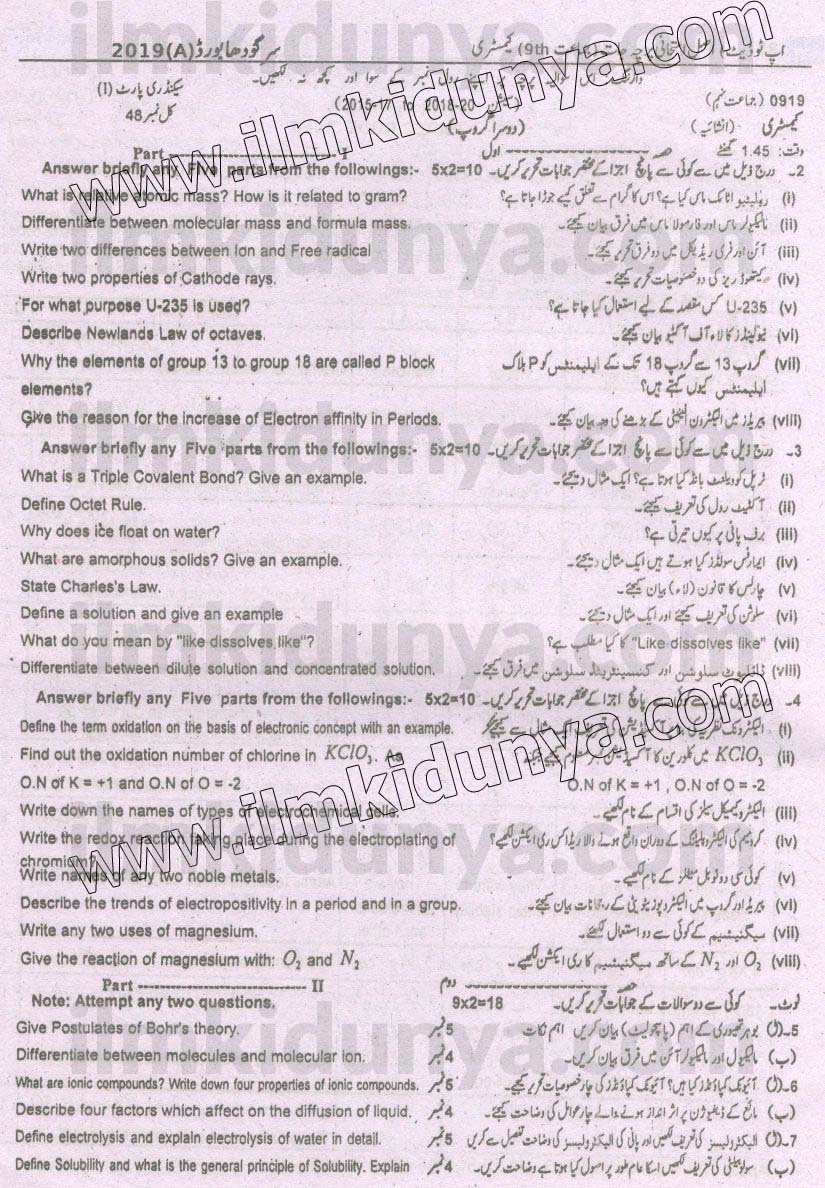 ilmkidunya.com
سرگودھا بورڈ 2019(A)
اپ ٹو ڈیٹ (9th) کیمسٹری
سیکنڈری پارٹ (I)
0919 (جماعت نہم)
کل نمبر 48
(2015-17 to 2018-20)
کیمسٹری (انشائیہ)
(دوسرا گروپ)
وقت: 1.45 گھنٹے
Part ------------------------ I حصہ اول
Answer briefly any Five parts from the followings:- 5x2=10 2۔ درج ذیل میں سے کوئی سے پانچ اجزا کے مختصر جوابات تحریر کریں۔
What is relative atomic mass? How is it related to gram? (i) ریلیٹیو اٹامک ماس کیا ہے؟ اس کا گرام سے تعلق کیسے جوڑا جاتا ہے؟
Differentiate between molecular mass and formula mass. (ii) مالیکیولر ماس اور فارمولا ماس میں فرق بیان کیجئے۔
Write two differences between Ion and Free radical (iii) آئن اور فری ریڈیکل میں دو فرق تحریر کیجئے۔
Write two properties of Cathode rays. (iv) کیتھوڈ ریز کی دو خصوصیات تحریر کیجئے۔
For what purpose U-235 is used? (v) U-235 کس مقصد کے لیے استعمال کیا جاتا ہے؟
Describe Newlands Law of octaves. (vi) نیولینڈز کا لاء آف آکٹیوز بیان کیجئے۔
Why the elements of group 13 to group 18 are called P block (vii) گروپ 13 سے گروپ 18 تک کے ایلیمنٹس کو P بلاک
elements? ایلیمنٹس کیوں کہتے ہیں؟
Give the reason for the increase of Electron affinity in Periods. (viii) پیریڈز میں الیکٹرون افینیٹی کے بڑھنے کی وجہ بیان کیجئے۔
Answer briefly any Five parts from the followings:- 5x2=10 3۔ درج ذیل میں سے کوئی سے پانچ اجزا کے مختصر جوابات تحریر کریں۔
What is a Triple Covalent Bond? Give an example. (i) ٹرپل کوویلنٹ بانڈ کیا ہوتا ہے؟ ایک مثال دیجئے۔
Define Octet Rule. (ii) آکٹیٹ رول کی تعریف کیجئے۔
Why does ice float on water? (iii) برف پانی پر کیوں تیرتی ہے؟
What are amorphous solids? Give an example. (iv) ایمارفس سولڈز کیا ہوتے ہیں ایک مثال دیجئے۔
State Charles's Law. (v) چارلس کا قانون (لاء) بیان کیجئے۔
Define a solution and give an example (vi) سلوشن کی تعریف کیجئے اور ایک مثال دیجئے۔
What do you mean by "like dissolves like"? (vii) "Like dissolves like" کا کیا مطلب ہے؟
Differentiate between dilute solution and concentrated solution. (viii) ڈائلیوٹ سلوشن اور کنسنٹریٹڈ سلوشن میں فرق کیجئے۔
Answer briefly any Five parts from the followings:- 5x2=10 4۔ درج ذیل میں سے کوئی سے پانچ اجزا کے مختصر جوابات تحریر کریں۔
Define the term oxidation on the basis of electronic concept with an example. (i) الیکٹرونک
Find out the oxidation number of chlorine in KClO₃. As (ii) KClO₃ میں کلورین کا آکسیڈیشن
O.N of K = +1 and O.N of O = -2 O.N of K = +1 , O.N of O = -2
Write down the names of types of electrochemical cells. (iii) الیکٹروکیمیکل سیلز کی اقسام کے نام لکھیے۔
Write the redox reaction taking place during the electroplating of (iv) کرومیم کی الیکٹروپلیٹنگ کے دوران واقع ہونے والا ریڈاکس ری ایکشن لکھیے؟
chromium.
Write names of any two noble metals. (v) کوئی سی دو نوبل میٹلز کے نام لکھیے۔
Describe the trends of electropositivity in a period and in a group. (vi) پیریڈ اور گروپ میں الیکٹروپوزیٹویٹی کے رجحانات بیان کیجئے۔
Write any two uses of magnesium. (vii) میگنیشیم کے کوئی سے دو استعمال لکھئے۔
Give the reaction of magnesium with: O₂ and N₂ (viii) O₂ اور N₂ کے ساتھ میگنیشیم کا ری ایکشن لکھیے۔
Part ------------------------------ II حصہ دوم
Note: Attempt any two questions. 9x2=18 نوٹ۔ کوئی سے دو سوالات کے جوابات تحریر کریں۔
Give Postulates of Bohr's theory. 5نمبر 5۔(ا) بوہر تھیوری کے اہم (پاسچولیٹ) بیان کریں اہم نکات
Differentiate between molecules and molecular ion. 4نمبر (ب) مالیکیول اور مالیکیولر آئن میں فرق بیان کریں۔
What are ionic compounds? Write down four properties of ionic compounds. 5نمبر 6۔(ا) آئیونک کمپاؤنڈز کیا ہیں؟ آئیونک کمپاؤنڈز کی چار خصوصیات تحریر کیجیے۔
Describe four factors which affect on the diffusion of liquid. 4نمبر (ب) مائع کے ڈیفیوژن پر اثر انداز ہونے والے چار عوامل کی وضاحت کیجئے۔
Define electrolysis and explain electrolysis of water in detail. 5نمبر 7۔(ا) الیکٹرولیسز کی تعریف لکھیں اور پانی کی الیکٹرولیسز کی وضاحت تفصیل سے کریں
Define Solubility and what is the general principle of Solubility. Explain 4نمبر (ب) سولوبیلٹی کی تعریف لکھیں اسکا عام طور پر اصول کیا ہوتا ہے وضاحت کریں۔